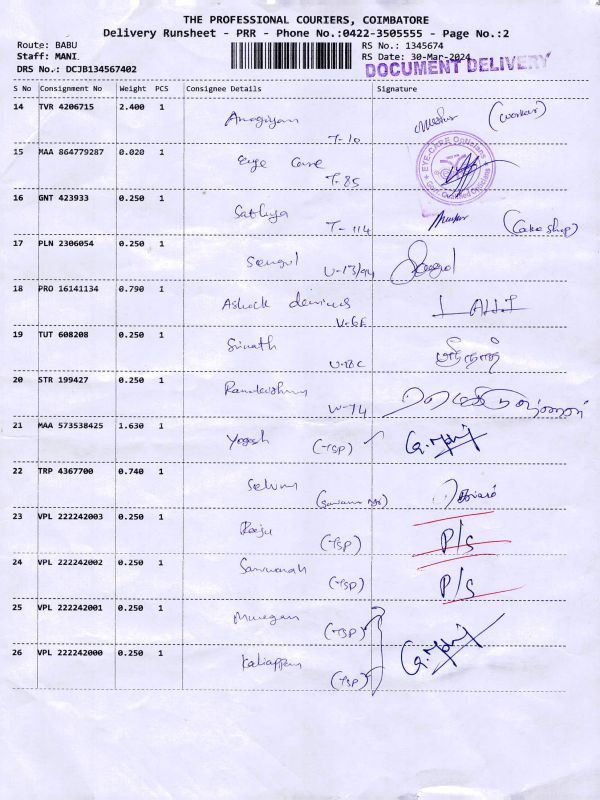 THE PROFESSIONAL COURIERS, COIMBATORE
Delivery Runsheet - PRR - Phone No.:0422-3505555 - Page No.:2
Route: BABU RS No.: 1345674
Staff: MANI. RS Date: 30-Mar-2024
DRS No.: DCJB134567402 DOCUMENT DELIVERY
S No Consignment No Weight PCS Consignee Details Signature
14 TVR 4206715 2.400 1 (worker)
T-10
15 MAA 864779287 0.020 1 Eye Care EYE-CARE Opticians
T-85
16 GNT 423933 0.250 1 Sathya (Cake shop)
T-114
17 PLN 2306054 0.250 1 Sengol
U-13/94
18 PRO 16141134 0.790 1 Ashock
V-6E
19 TUT 608208 0.250 1 Srinath ஸ்ரீநாத்
U-18C
20 STR 199427 0.250 1
W-74
21 MAA 573538425 1.630 1 Yogesh (TSP)
22 TRP 4367700 0.740 1 Selvam
23 VPL 222242003 0.250 1 Raju (TSP) P/S
24 VPL 222242002 0.250 1 Saravanan (TSP) P/S
25 VPL 222242001 0.250 1 Murugan (TSP)
26 VPL 222242000 0.250 1 Kaliappan (TSP)